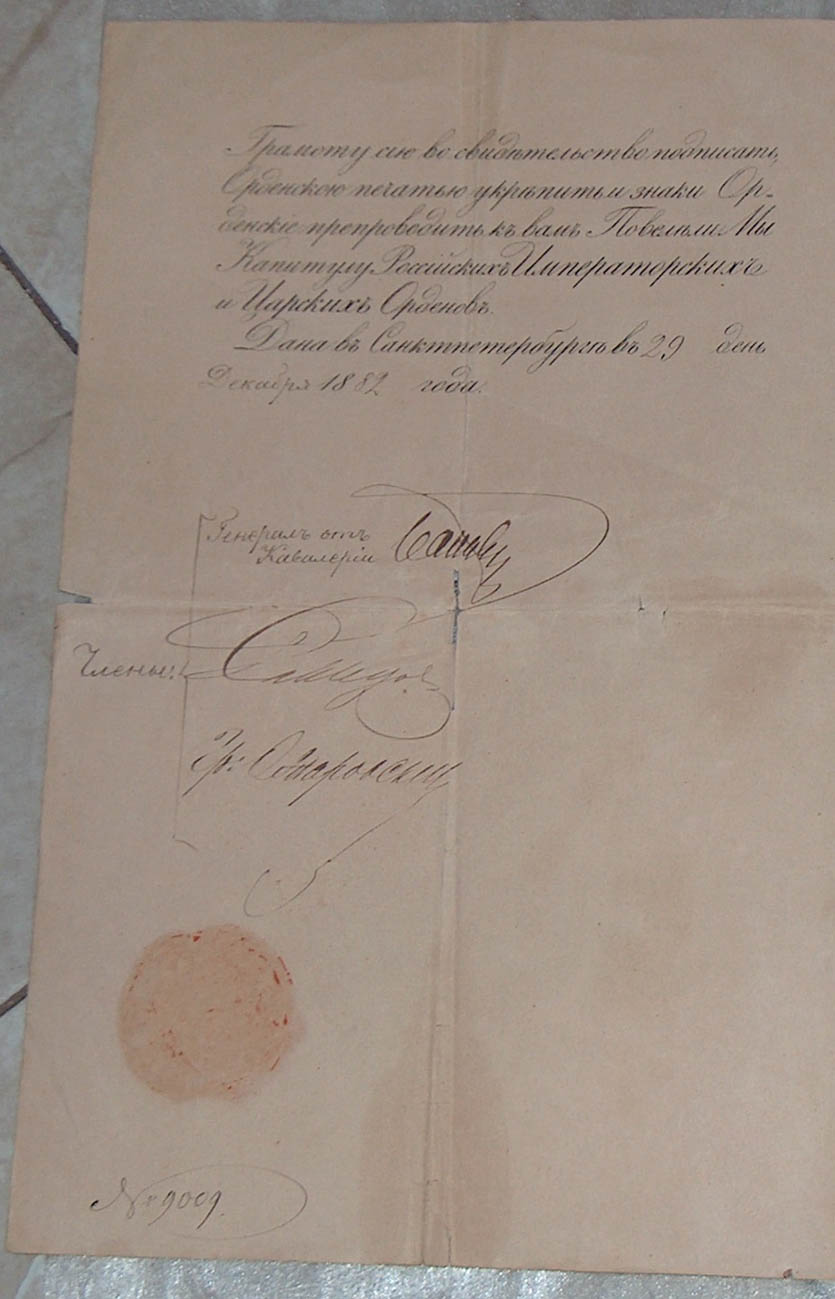 Грамоту сію во свидѣтельство подписать,
Орденскою печатью укрѣпить и знаки Ор-
денскіе препроводить къ вамъ Повелѣли Мы
Капитулу Россійскихъ Императорскихъ
и Царскихъ Орденовъ.
Дана въ Санктпетербургѣ въ 29 день
Декабря 1882 года.
Генералъ отъ
Кавалеріи
Члены:
Гр:
№ 9009.